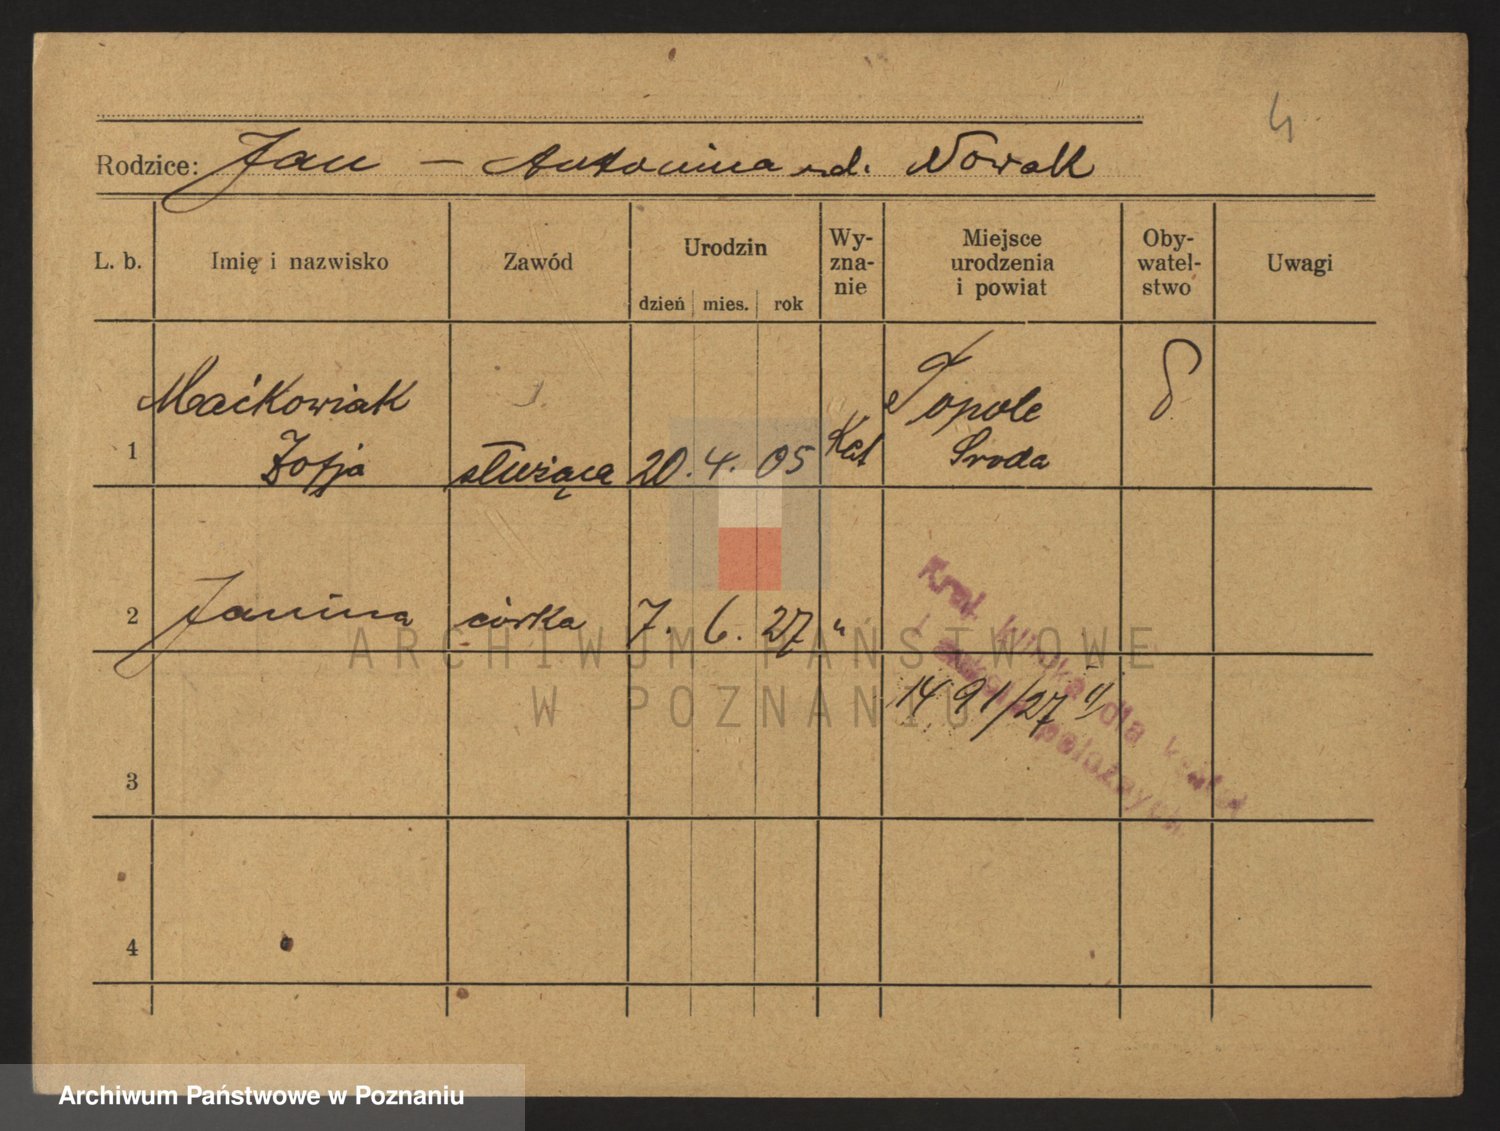 4
Rodzice: Jan — Antonina ud. Nowak
L. b. Imię i nazwisko Zawód Urodzin dzień mies. rok Wy-zna-nie Miejsce urodzenia i powiat Oby-watel-stwo Uwagi
Maćkowiak Topole
1 Zofja służąca 20. 4. 05 Kat Sroda
2 Janina córka 7. 6. 27 "
Kraj. Klinika dla kobiet
i położnych
1491/27 II
3
4
ARCHIWUM PAŃSTWOWE
W POZNANIU
Archiwum Państwowe w Poznaniu